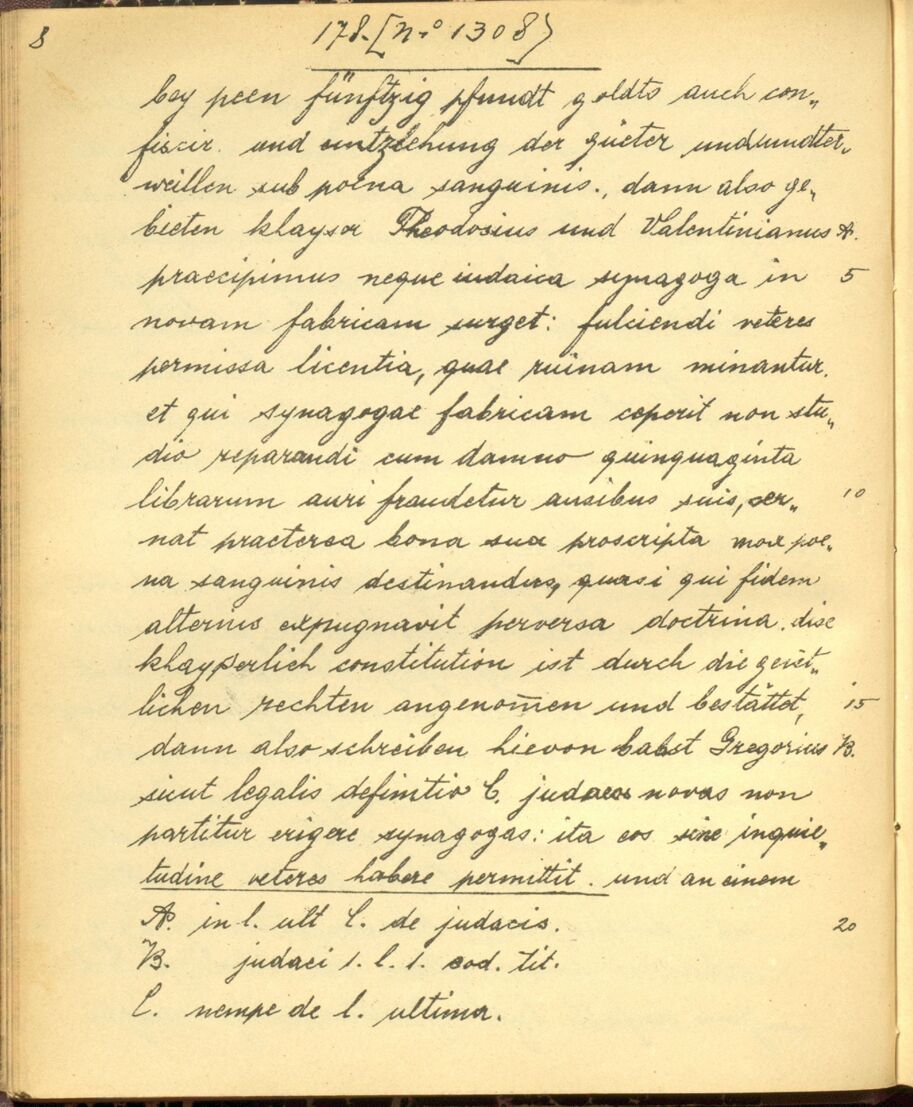 8
178. [N.o 1308]
bey peen fünftzig pfundt goldts auch con„
fiscir. und entziehung der güeter und undter„
weillen sub poena sanguinis., dann also ge„
bieten khaysr Theodosius und Valentinianus A.
praecipimus neque iudaica synagoga in 5
novam fabricam surget: fulciendi veteres
permissa licentia, quae ruinam minantur.
et qui synagogae fabricam coperit non stu„
dio reparandi cum damno quinquaginta
librarum auri fraudetur ausibus suis, cer„ 10
nat praeterea bona sua proscripta mox poe„
na sanguinis destinandus, quasi qui fidem
alterius expugnavit perversa doctrina. dise
khayserlich constitution ist durch die geist„
lichen rechten angenom̄en und bestättet, 15
dann also schreiben hievon babst Gregorius B.
sicut legalis definitio C. judaeos novas non
partitur erigere synagogas: ita eos sine inquie„
tudine veteres habere permittit. und an einem
A. in l. ult C. de judaeis. 20
B. judaei 1. l. 1. eod. tit.
C. nempe de l. ultima.